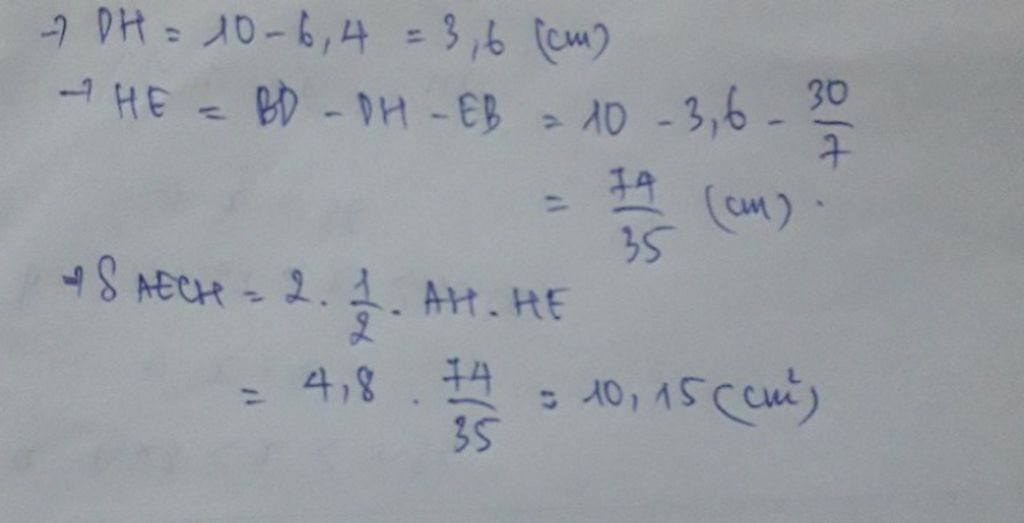 → DH = 10 - 6,4 = 3,6 (cm)
→ HE = BD - DH - EB = 10 - 3,6 - 30/7
= 74/35 (cm).
→ S AECH = 2. 1/2. AH. HE
= 4,8 . 74/35 = 10,15 (cm²)